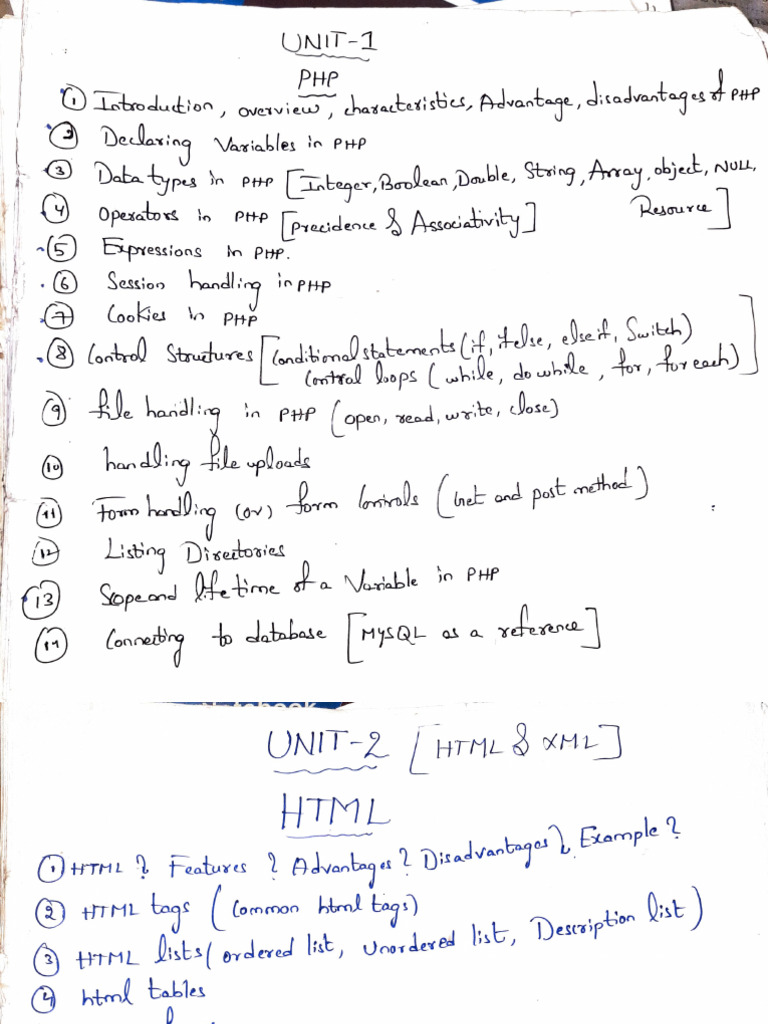 UNIT-1
PHP
① Introduction, overview, characteristics, Advantage, disadvantages of PHP
② Declaring Variables in PHP
③ Data types in PHP [Integer, Boolean, Double, String, Array, object, NULL,
Resource]
④ Operators in PHP [precidence & Associativity]
⑤ Expressions in PHP.
⑥ Session handling in PHP
⑦ Cookies in PHP
⑧ Control Structures [Conditional statements (if, ifelse, elseif, Switch)
Control loops (while, do while, for, foreach)]
⑨ file handling in PHP (open, read, write, close)
⑩ handling file uploads
⑪ Form handling (or) form Controls (Get and post method)
⑫ Listing Directories
⑬ Scope and life time of a Variable in PHP
⑭ Connecting to database [MySQL as a reference]
UNIT-2 [HTML & XML]
HTML
① HTML? Features? Advantages? Disadvantages? Example?
② HTML tags (Common html tags)
③ HTML lists (ordered list, Unordered list, Description list)
④ html tables